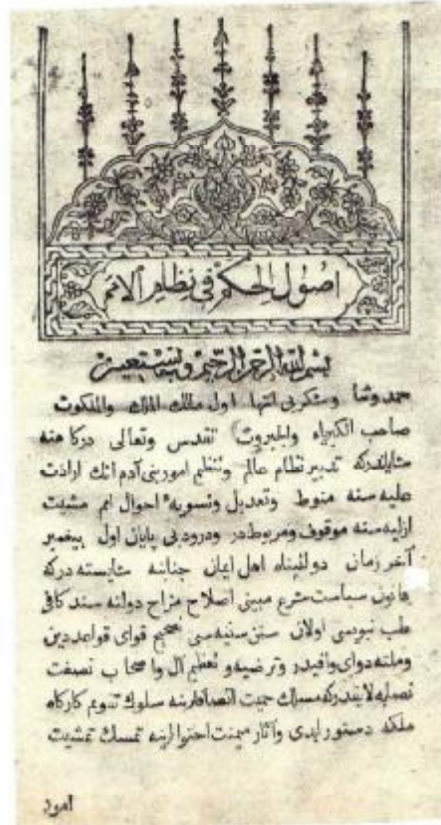 اصول الحكم في نظام الامم
بسم الله الرحمن الرحيم وبه نستعين
حمد وثنا وشكر بى انتها اول مالك الملك والملكوت
صاحب الكبرياء والجبروت تقدس وتعالى دركاهنه
شاياندركه تدبير نظام عالم وتنظيم امور بنى آدم انك ارادت
عليه سنه منوط وتعديل وتسويهٔ احوال امم مشيت
ازليه سنه موقوف ومربوطدر ودرود بى پايان اول پيغمبر
آخر زمان دولتپناه اهل ايمان جنابنه شايسته دركه
قانون سياست شرع مبينى اصلاح مزاج دولته سند كافى
طب نبويسى اولان سنن سنيه سى تصحيح قواى قواعد دين
وملته دواى وافيدر وترضيه و تعظيم آل واصحاب نصفت
نصابه لايقدركه مسالك حميت اتصافلرينه سلوك تقويم كارگاه
ملكه دستور ابدى وآثار ميمنت احتوالرينه تمسك تمشيت
امور